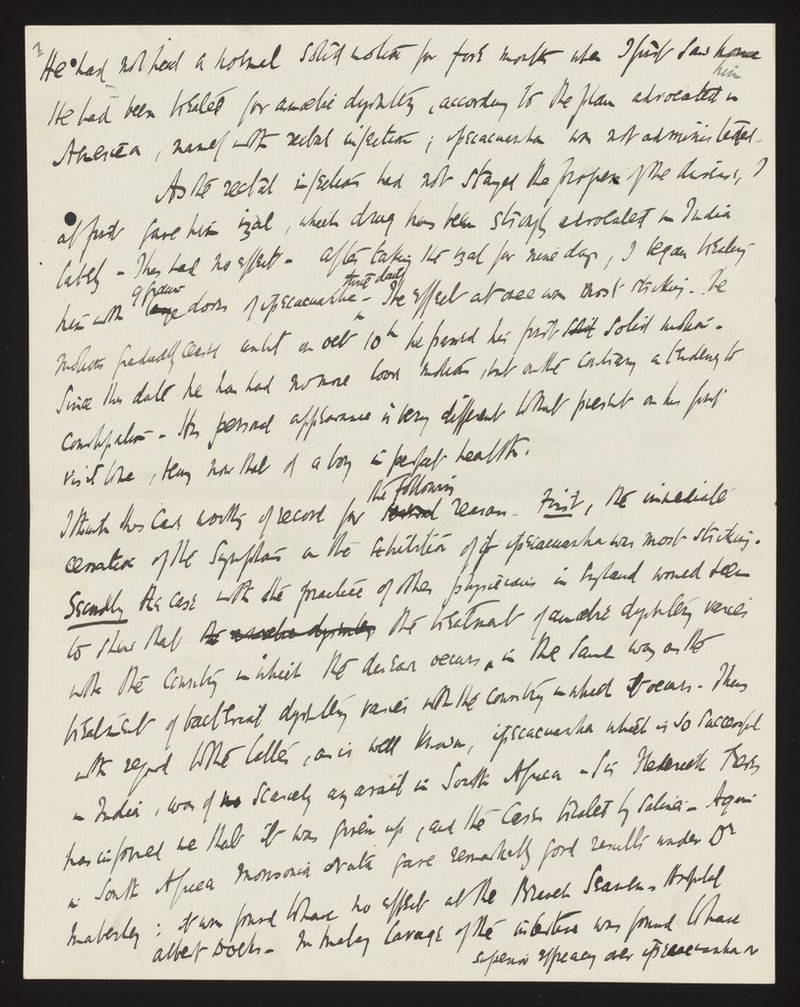 2
He had not had a normal solid motion for five months when I first saw him
He had been treated for amoebic dysentery, according to the plan advocated in
America, namely with rectal injection; ipecacuanha was not administered.
As the rectal injections had not stayed the progress of the disease, I
at first gave him izal, which drug has been strongly advocated in India
lately - This had no effect - After taking the izal for nine days, I began treating
him with large doses of ipecacuanha - The effect at once was most striking. The
three daily
motions gradually ceased until on Oct 10th he passed his first solid motion -
Since this date he has had no more loose motions, but on the contrary a tendency to
constipation - His personal appearance is very different to that present on his first
visit to me, being now that of a boy in perfect health.
I think this case worthy of record for several reasons - First, the immediate
the following
cessation of the symptoms on the exhibition of ipecacuanha was most striking.
Secondly the case with the practice of other physicians in England would seem
to show that the amoebic dysentery the treatment of amoebic dysentery varies
with the country in which the disease occurs, in the same way as the
treatment of bacterial dysentery varies with the country in which it occurs - Thus
with regard to the latter, as is well known, ipecacuanha which is so successful
in India, was of no scarcely any avail in South Africa - Sir Frederick Treves
has informed me that it was given up, and the cases treated by salines - Again
in South Africa Monsonia ovata gave remarkably good results under Dr
Maberley: it was found to have no effect at the Branch Seamen's Hospital
Albert Docks - In Malay lavage of the intestine was found to have
superior efficacy over ipecacuanha